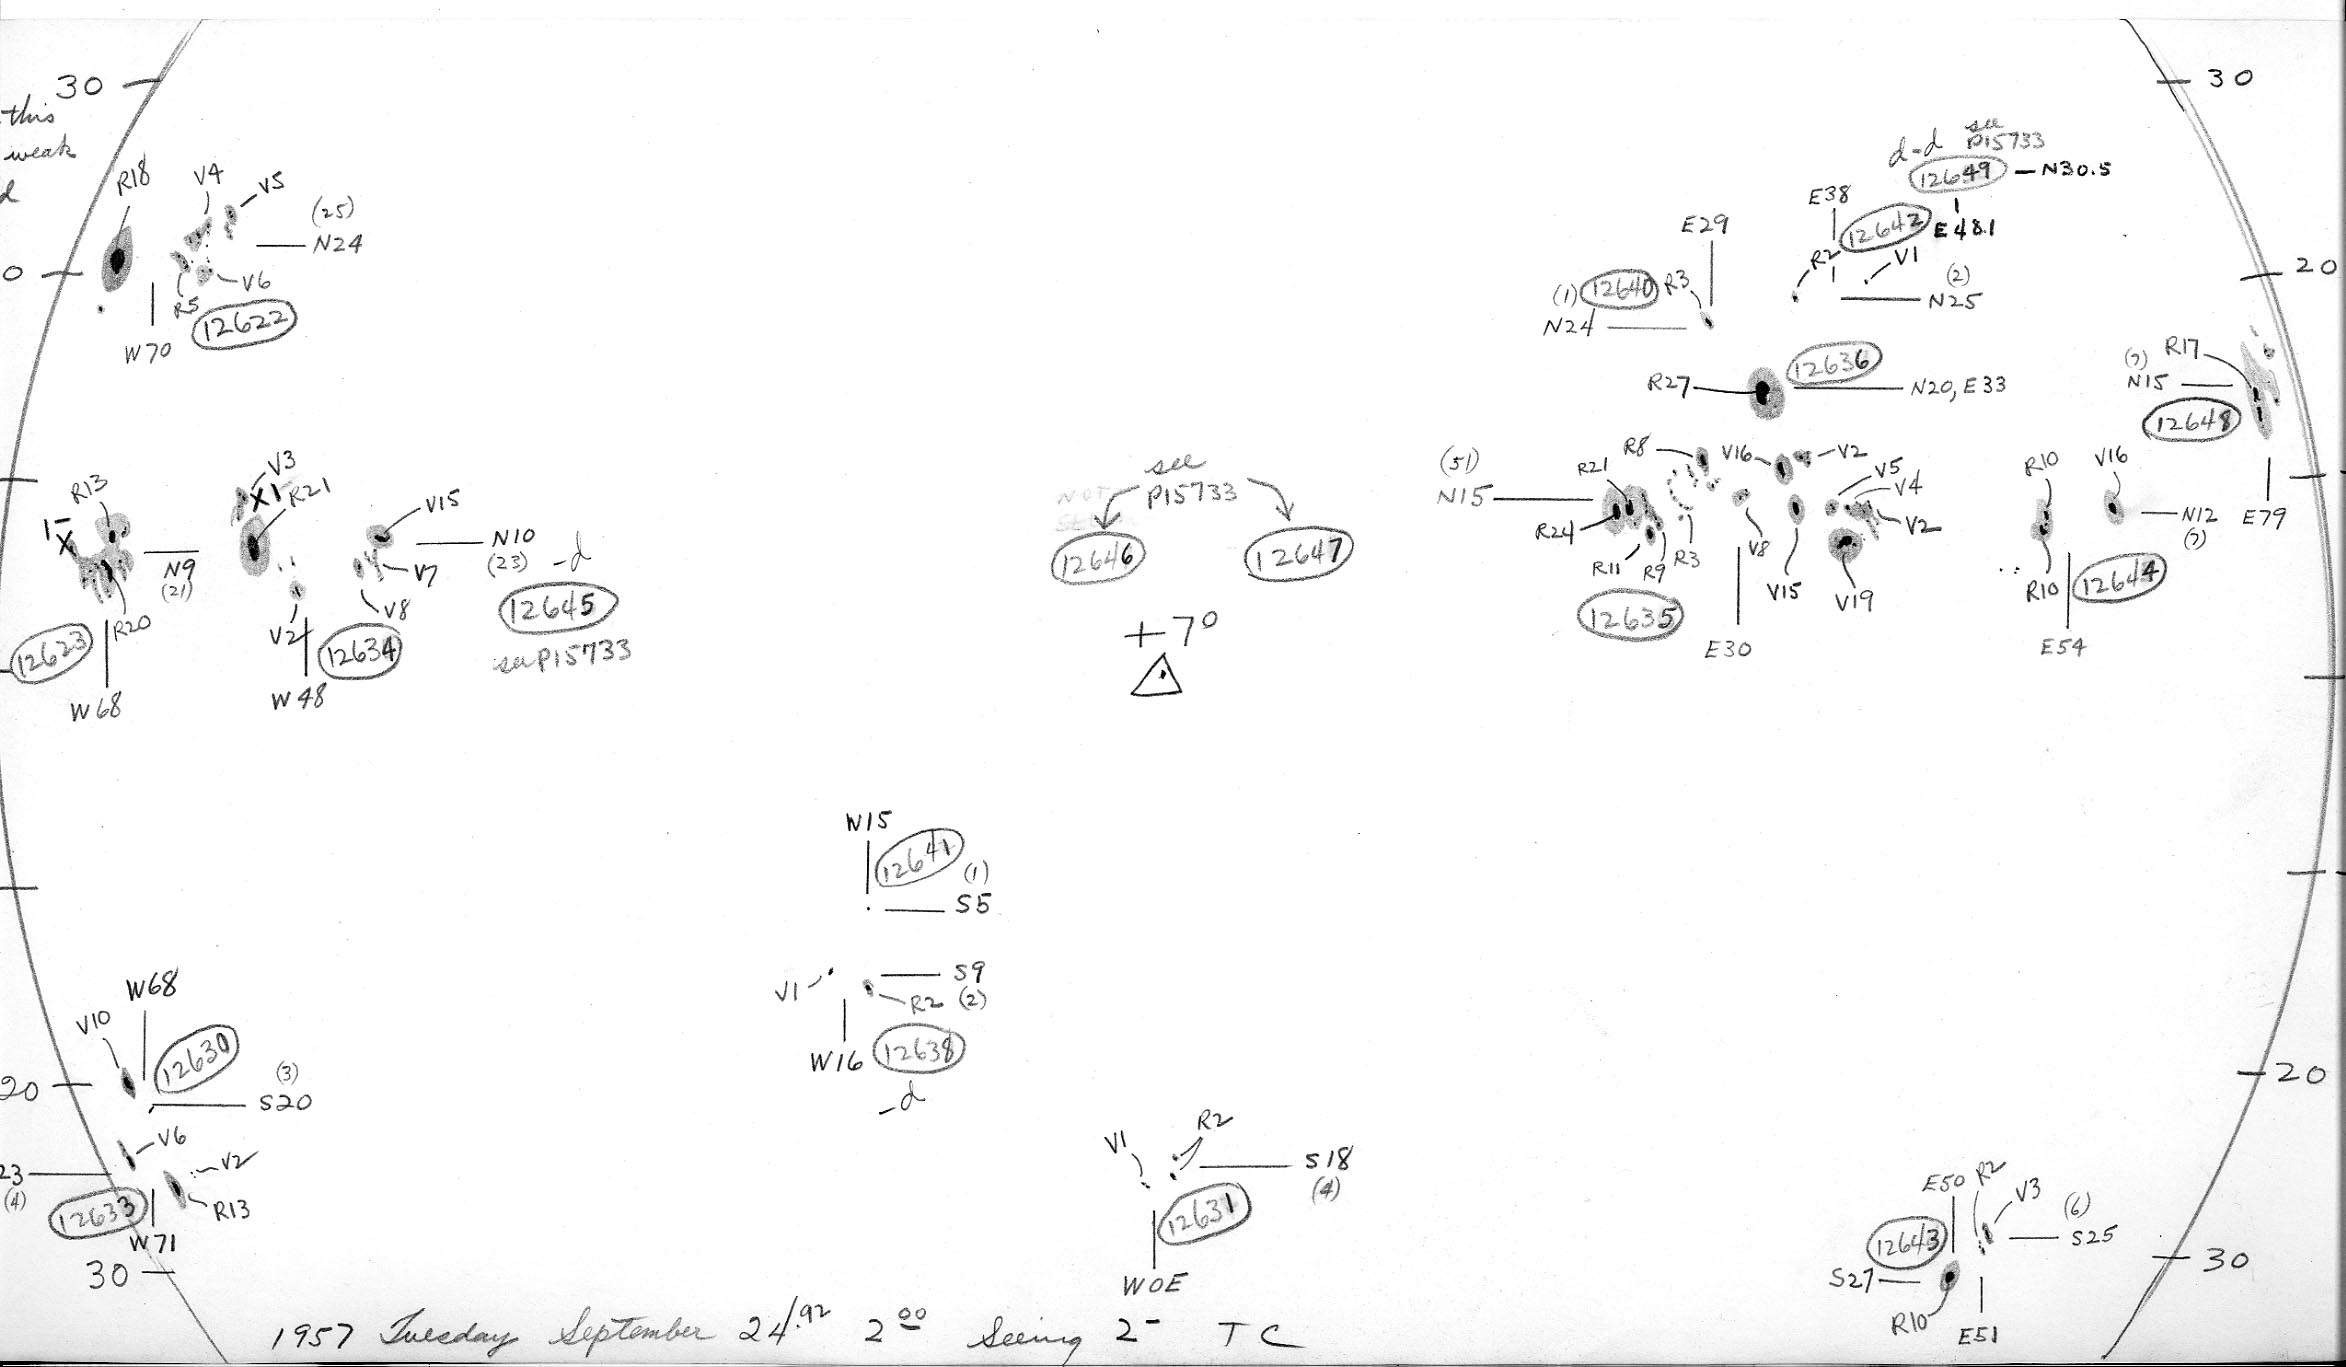 30
this
weak
d
R18
V4
V5
(25)
N24
0
R5
V6
12622
W70
30
see
d-d P15733
12649 — N30.5
E48.1
E38
12642
R2
V1
(2)
N25
E29
(1) 12640 R3
N24
20
12636
R27
N20, E33
R17
N15
12648
E79
V3
X1-
R21
R13
1-
X
N9
(21)
R20
12623
W68
V15
N10
(23)
-d
V7
V8
V2
12634
W48
12645
see P15733
see
NOT
P15733
12646
12647
+7°
(51)
N15
R8
R21
R24
R11
R9
R3
12635
V16
V2
V5
V4
V2
V8
V15
V19
E30
R10
V16
N12
(7)
R10
12644
E54
W15
12641
(1)
S5
V1
S9
R2 (2)
W16
12638
-d
W68
V10
12630
(3)
20
S20
V6
23
(4)
V2
R13
12633
W71
30
V1
R2
S18
(4)
12631
W0E
20
E50
R2
V3
(6)
12643
S25
S27
R10
E51
30
1957 Tuesday September 24.92 2 00 Seeing 2- TC